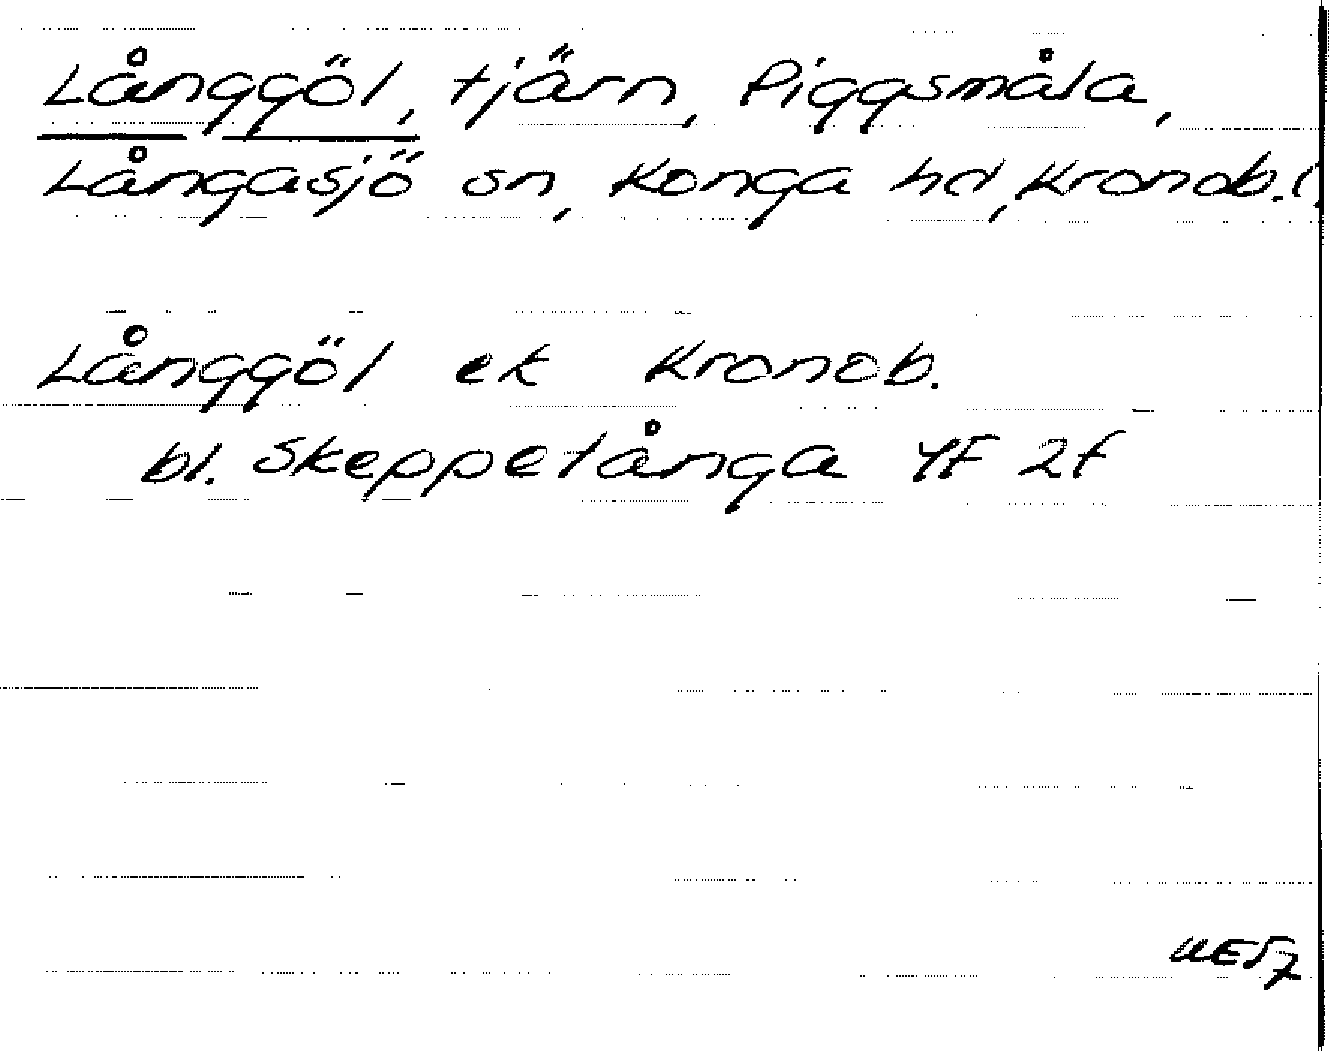 Långgöl, tjärn, Piggsmåla,
Långasjö sn, Konga hd, Kronob. l
Långgöl ek Kronob.
bl. Skeppetånga 4F 2f